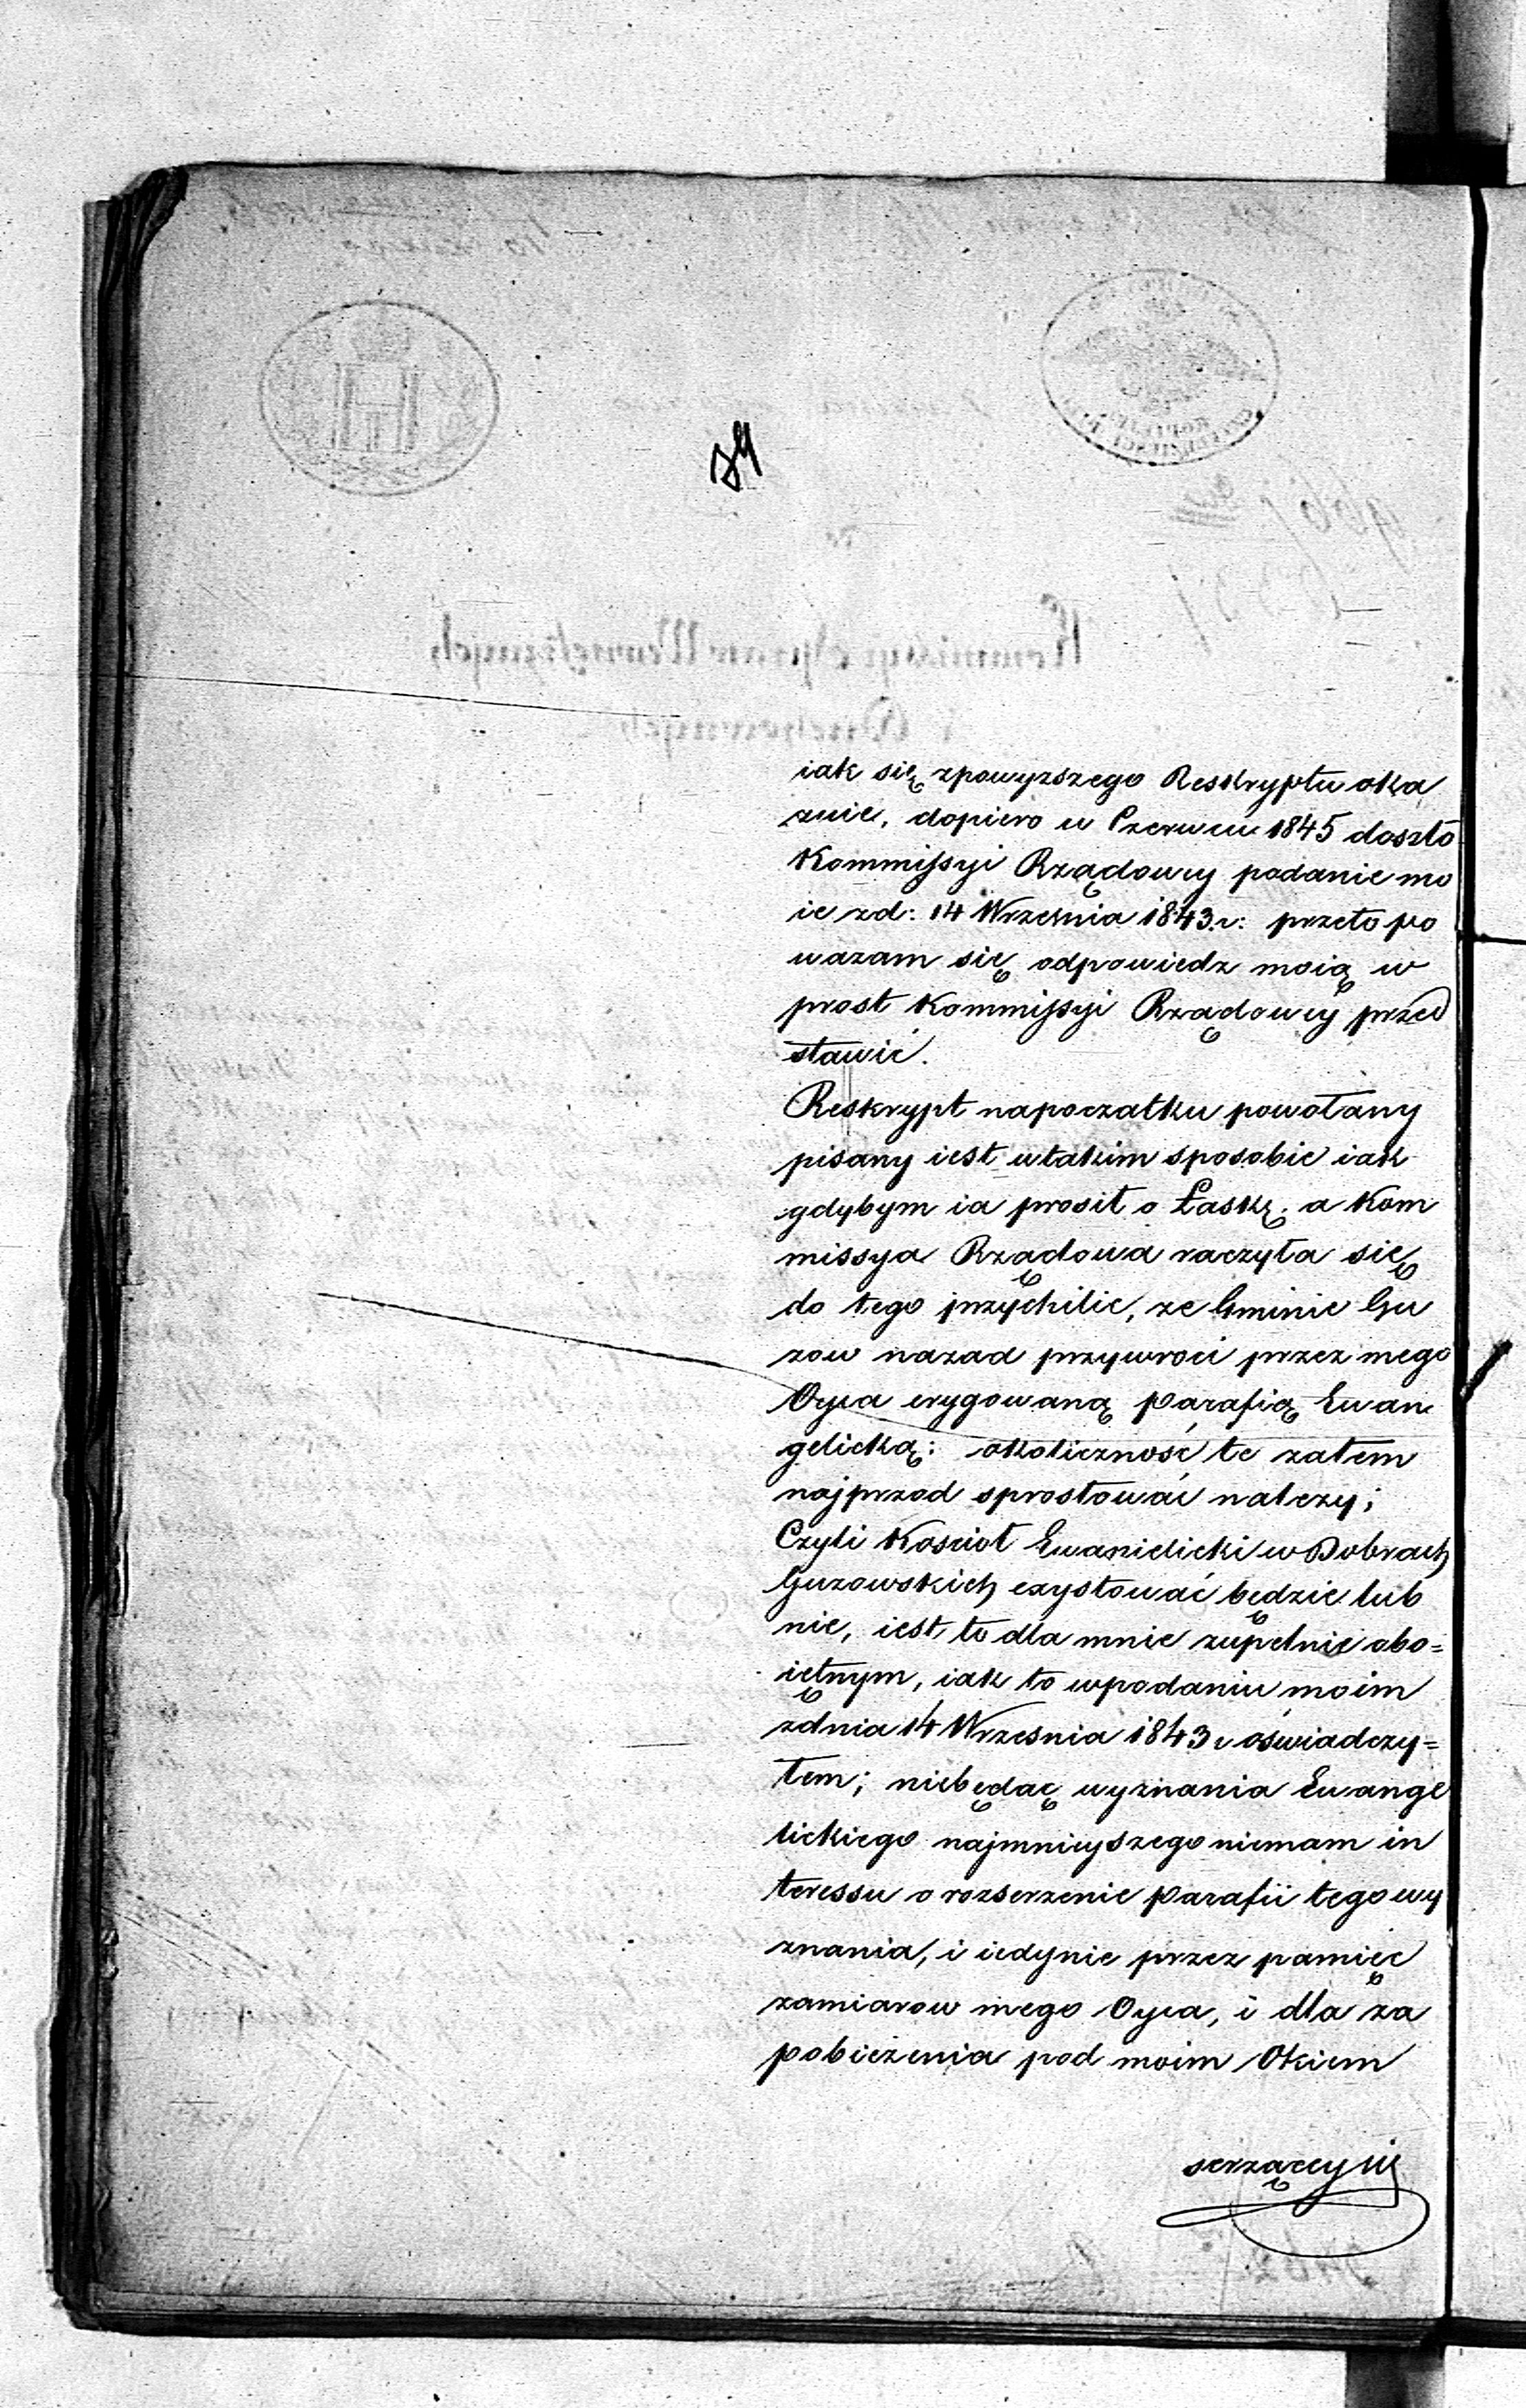 34
iak się zpowyzszego Reskryptu oka
zuie, dopiero w Czerwcu 1845 doszło
Kommissyi Rządowey podanie mo
ie zd: 14 Września 1843.r: przeto po
wazam się odpowiedz moią w
prost Kommissyi Rządowey przed
stawić.
Reskrypt napoczatku powołany
pisany iest wtakim sposobie iak
gdybym ia prosił o Łaskę, a Kom
missya Rządowa raczyła się
do tego przychilic, ze Gminie Gu
zow nazad przywroci przez mego
Oyca erygowaną Parafią Ewan
gelicką: okoliczność te zatem
najprzod sprostować nalezy;
Czyli Koscioł Ewanielicki w Dobrach
Guzowskich exystować będzie lub
nie, iest to dla mnie zupełnie obo=
iętnym, iak to wpodaniu moim
zdnia 14 Wrzesnia 1843 r oświadczy=
łem; niebędąc wyznania Ewange
lickiego najmnieyszego niemam in
teressu o rozserzenie Parafii tego wy
znania, i iedynie przez pamięc
zamiarow mego Oyca, i dla za
pobieżenia pod moim Okiem
serzącey się